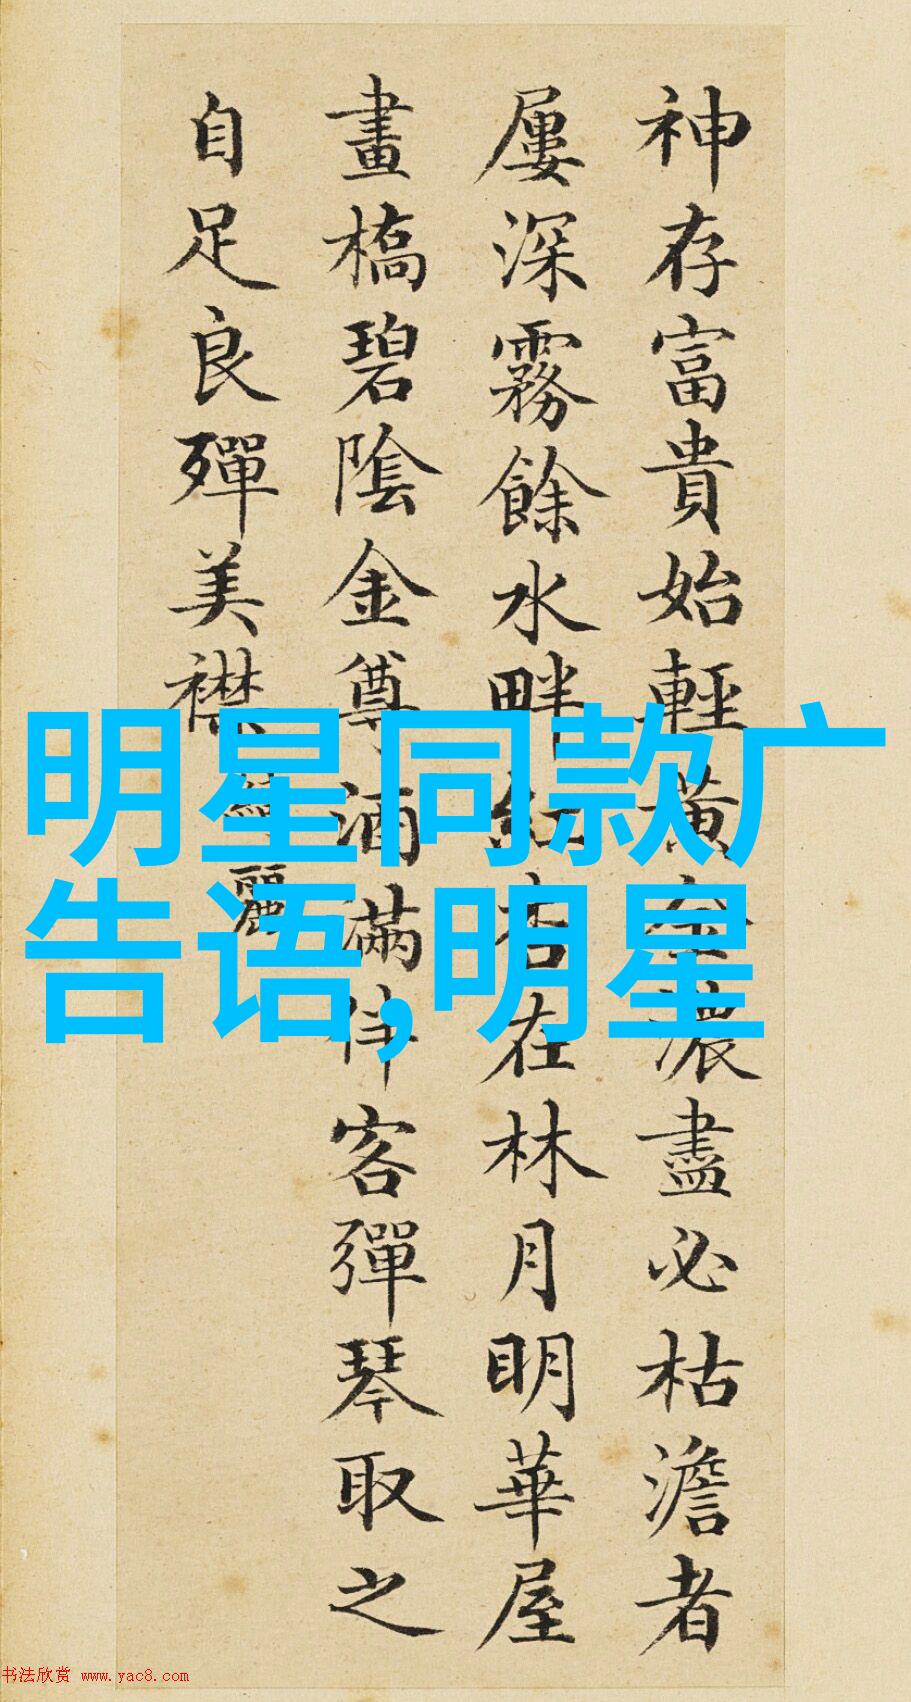 神存富貴始輕黃金濃盡必枯澹者
屢深霧餘水畔紅杏在林月明華屋
畫橋碧陰金尊酒滿伴客彈琴取之
自足良殫美襟麗
明星同款广
告语,明星
书法欣赏 www.yac8.com